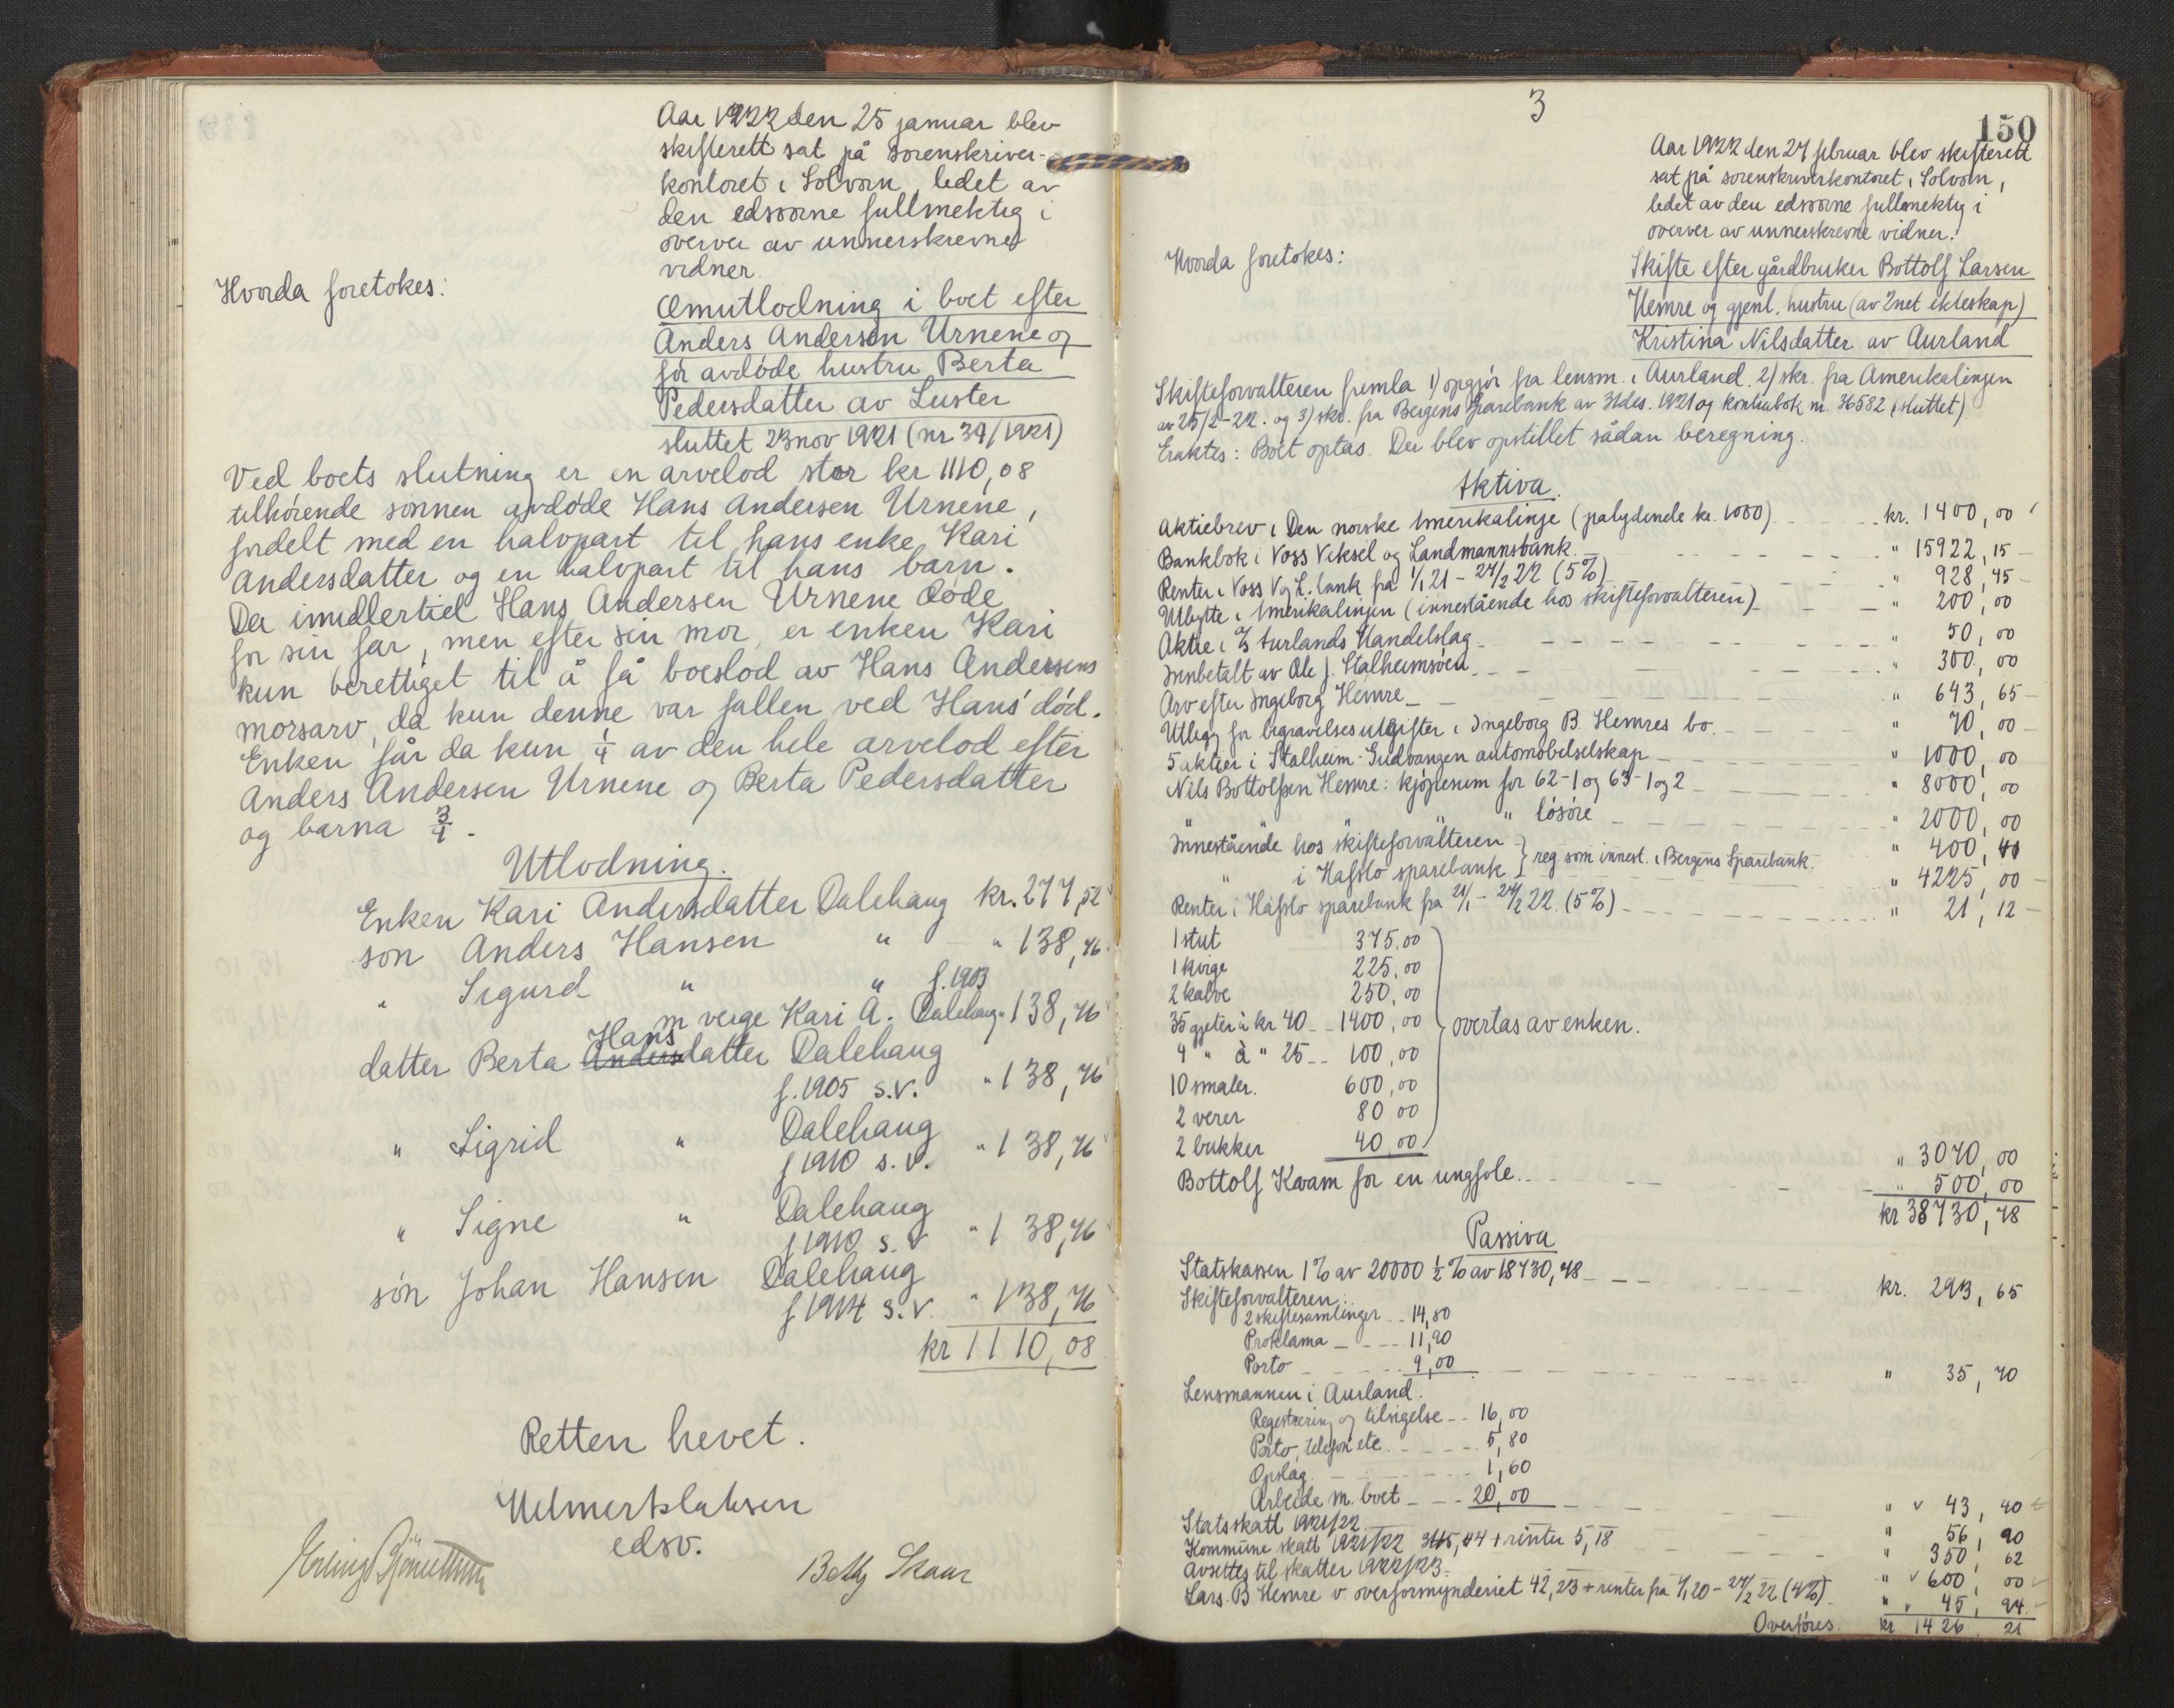 Aar 1922 den 25 januar blev
skifterett sat på sorenskriver-
kontoret i Solvorn, ledet av
den edsvorne fullmektig i
overver av unnerskrevne
vidner.
Hvorda foretokes:
Omutlodning i boet efter
Anders Andersen Urnene og
før avdøde hustru Berta
Pedersdatter av Luster
sluttet 23 nov 1921 (nr 39/1921)
Ved boets slutning er en arvelod stor kr 1110,08
tilhørende sønnen avdøde Hans Andersen Urnene,
fordelt med en halvpart til hans enke Kari
Andersdatter og en halvpart til hans barn.
Da imidlertid Hans Andersen Urnene døde
før sin far, men efter sin mor, er enken Kari
kun berettiget til å få boeslod av Hans Andersens
morsarv, da kun denne var fallen ved Hans' død.
Enken får da kun 1/4 av den hele arvelod efter
Anders Andersen Urnene og Berta Pedersdatter
og barna 3/4.
Utlodning.
Enken Kari Andersdatter Dalehaug kr. 277,52
søn Anders Hansen " " 138,76
" Sigurd " " f. 1903
m verge Kari A. Dalehaug " 138,76
Hans
datter Berta Andersdatter Dalehaug
f. 1905 s.v. " 138,76
" Sigrid " Dalehaug
f 1910 s.v. " 138,76
" Signe " Dalehaug
f 1910 s.v " 138,76
søn Johan Hansen Dalehaug
f 1914 s.v. " 138,76
kr 1110,08
Retten hevet.
edsv.
Betty Skaar
3
150
Aar 1922 den 27 februar blev skifterett
sat på sorenskriverkontoret i Solvorn,
ledet av den edsvorne fullmektig i
overver av unnerskrevne vidner.
Hvorda foretokes:
Skifte efter gårdbruker Bottolf Larsen
Hemre og gjenl. hustru (av 2net ekteskap)
Kristina Nilsdatter av Aurland
Skifteforvalteren fremla 1) opgjør fra lensm. i Aurland. 2) skr. fra Amerikalinjen
av 25/2-22. og 3) skr. fra Bergens Sparebank av 31 des. 1921 og kontrabok nr. 36582 (sluttet).
Eraktes: Boet optas. Der blev opstillet sådan beregning.
Aktiva.
Aktiebrev i Den norske Amerikalinje (pålydende kr. 1000) kr. 1400,00
Bankbok i Voss Veksel og Landmannsbank " 15922,15
Renter i Voss V og L. bank fra 1/1 21 - 27/2 22 (5%) " 928,45
Utbytte i Amerikalinjen (innestående hos skifteforvalteren) " 200,00
Aktie i % Aurlands Handelslag " 50,00
Innbetalt av Ole J. Stalheimsøen " 300,00
Arv efter Ingeborg Hemre " 643,65
Utlegg for begravelsesutgifter i Ingeborg B. Hemres bo. " 70,00
5 aktier i Stalheim-Gudvangen automobilselskap " 1000,00
Nils Bottolfsen Hemre: kjøpesum for 62-1 og 63-1 og 2 " 8000,00
" " " " løsøre " 2000,00
Innestående hos skifteforvalteren " 400,41
" i Hafslo sparebank } reg som innest. i Bergens Sparebank. " 4225,00
Renter i Hafslo sparebank fra 21/1 - 27/2 22. (5%) " 21,12
1 stut 375,00
1 kvige 225,00
2 kalve 250,00
35 gjeter à kr 40 1400,00 overtas av enken.
4 " à " 25 100,00
10 smaler. 600,00
2 verer 80,00
2 bukker 40,00
" 3070,00
Bottolf Kvam for en ungfole " 500,00
kr 38730,78
Passiva
Statskassen 1% av 20000 ½% av 18730,78 kr. 293,65
Skifteforvalteren:
2 skiftesamlinger 14,80
Proklama 11,90
Porto 9,00 " 35,70
Lensmannen i Aurland.
Registrering og tilsigelse 16,00
Porto, telefon etc. 5,80
Opslag 1,60
Arbeide m. boet 20,00 " 43,40
Statsskatt 1921/22 " 56,90
Kommune skatt 1921/22 345,44 + rinter 5,18 " 350,62
Avsettes til skatter 1922/23. " 600,00
Lars B Hemre v overformynderiet 42,23 + renter fra 1/1 20 - 27/2 22 (4%) " 45,94
Overføres. kr 1426,21